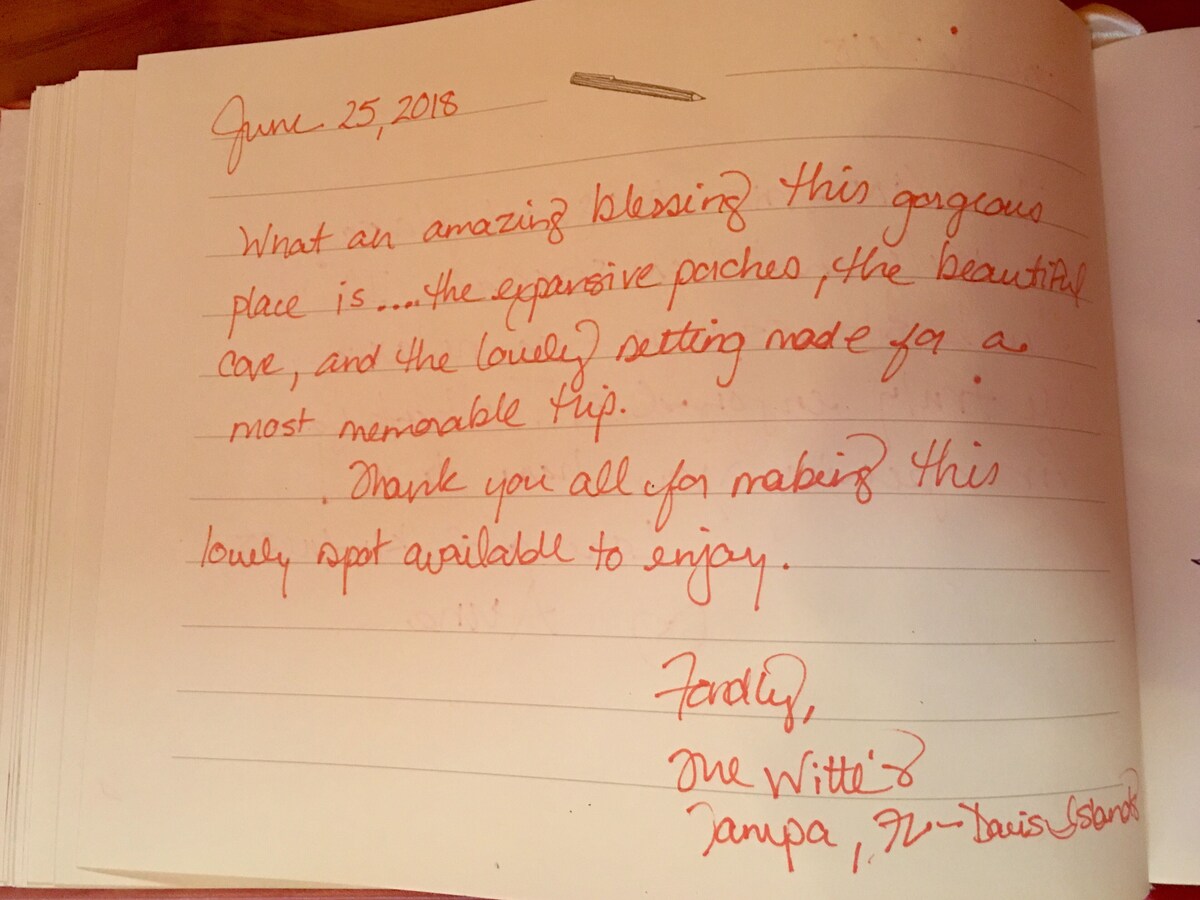 June 25, 2018
What an amazing blessing this gorgeous
place is....the expansive porches, the beautiful
cove, and the lovely setting made for a
most memorable trip.
Thank you all for making this
lovely spot available to enjoy.
Fondly,
The Witte's
Tampa, FL - Davis Islands